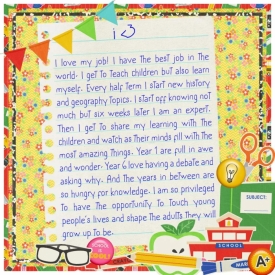 i <3
I love my job! I have the best job in the
world- I get to teach children but also learn
myself. Every half term I start new history
and geography topics. I start off knowing not
much but six weeks later I am an expert.
Then I get to share my learning with the
children and watch as their minds fill with the
most amazing things. Year 1 are full in awe
and wonder- Year 6 love having a debate and
asking why. And the years in between are
so hungry for knowledge. I am so privileged
to have the opportunity to touch young
people's lives and shape the adults they will
grow up to be.
SUBJECT:
SCHOOL
A+